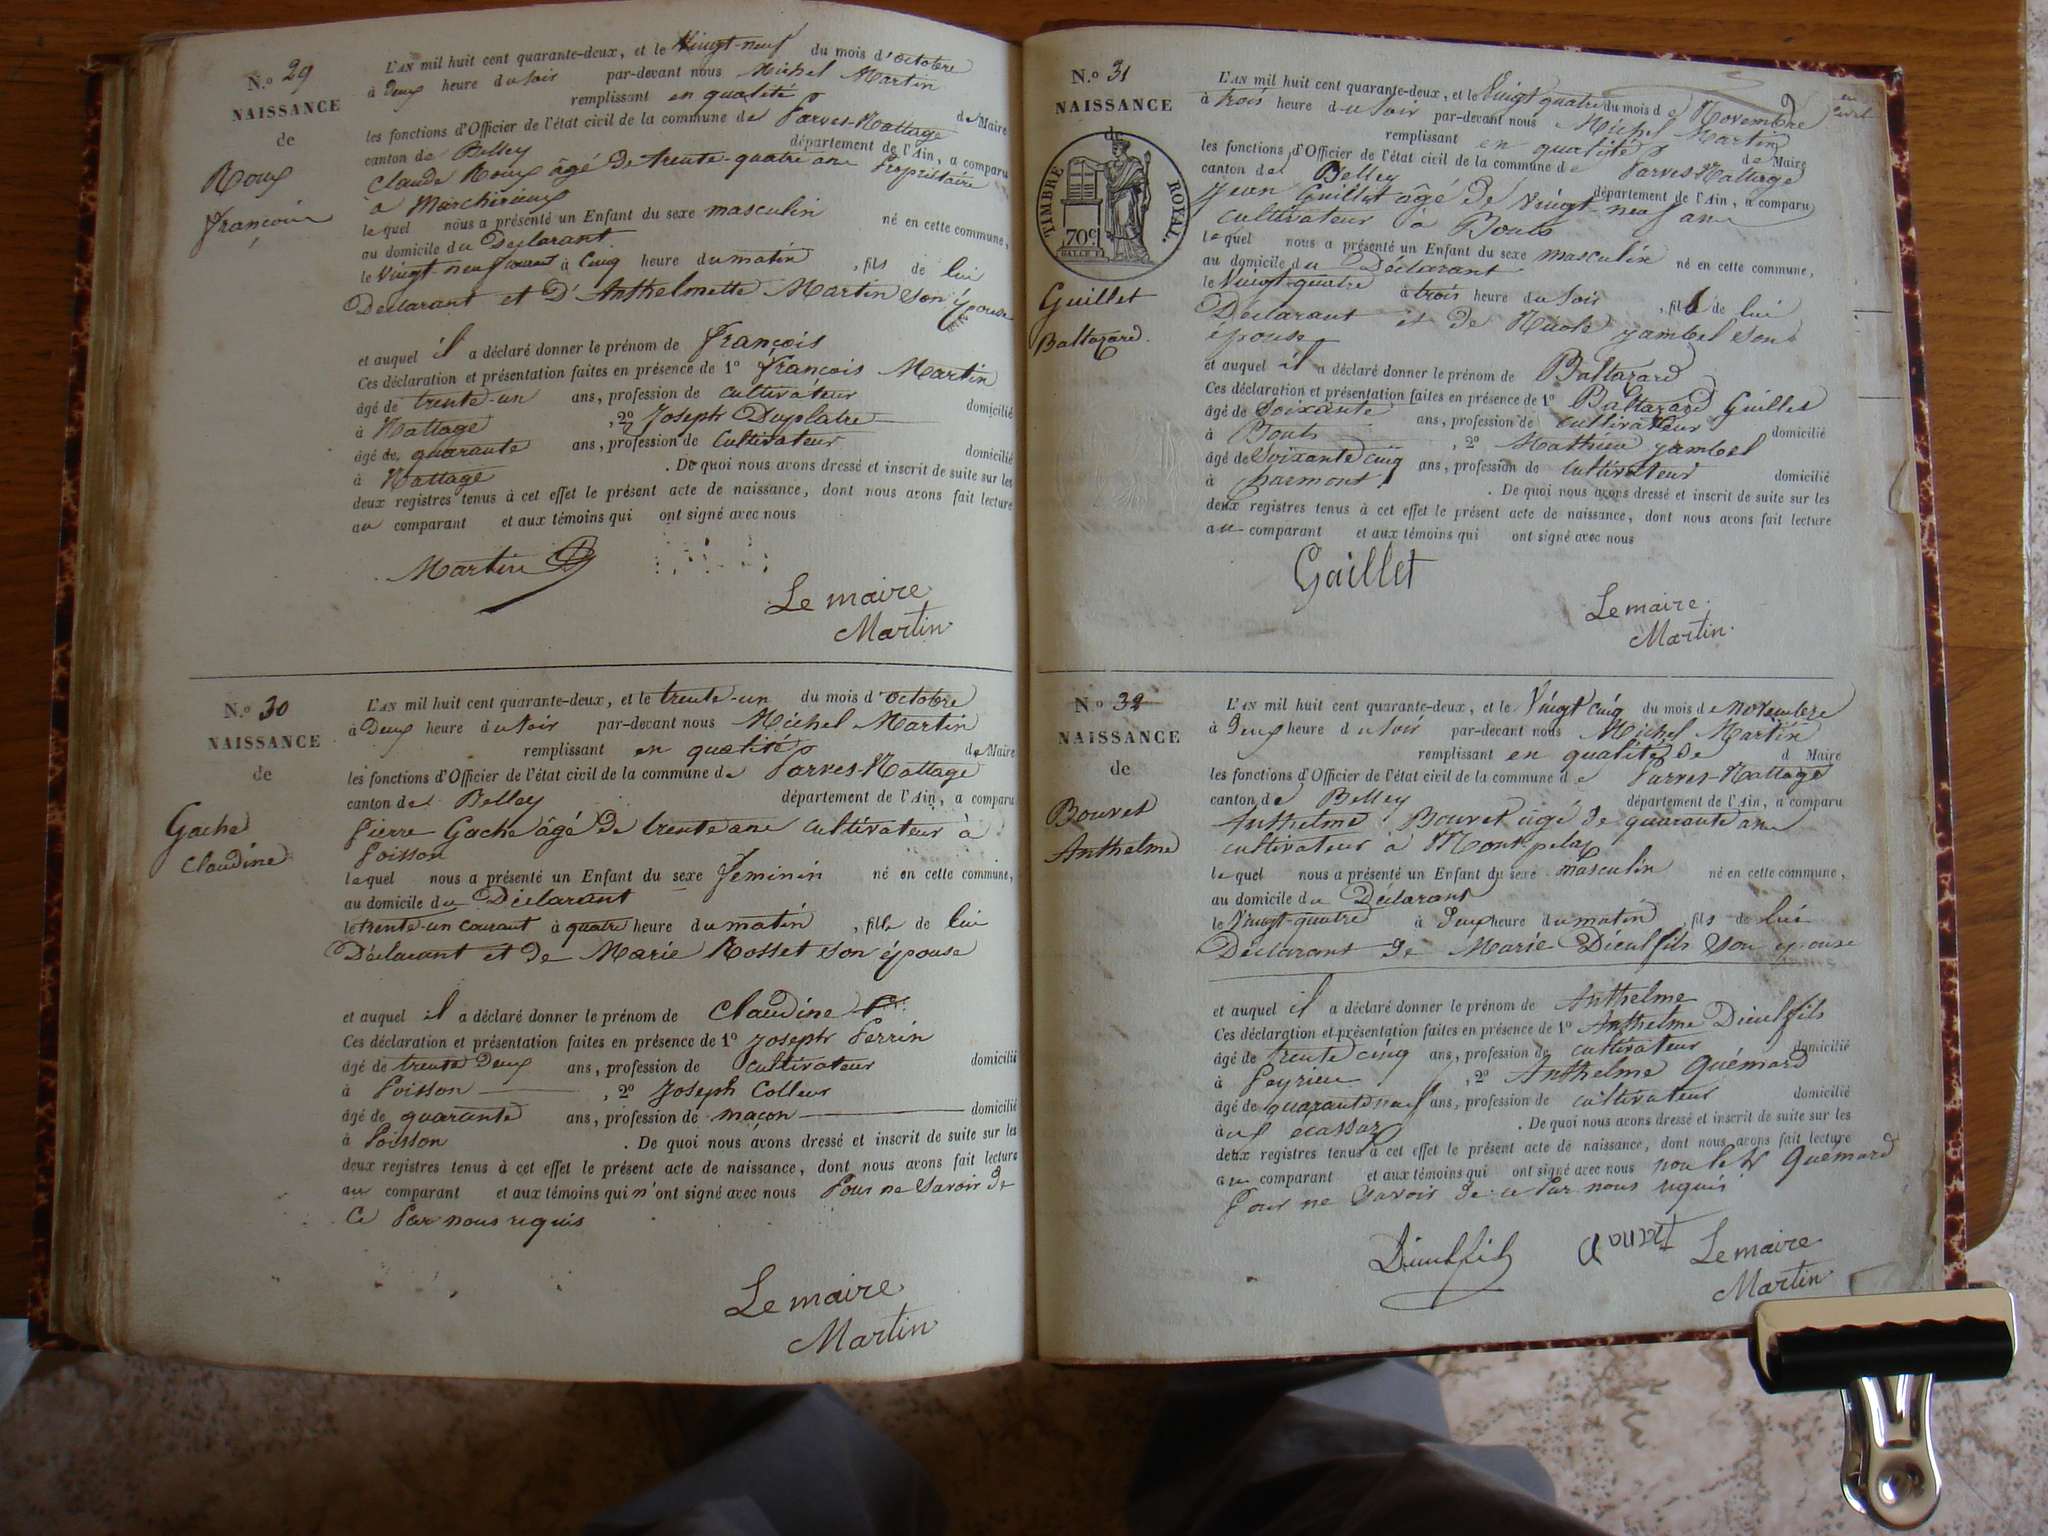 N.o 29
NAISSANCE
de
Roux
François
L'AN mil huit cent quarante-deux, et le Vingt-neuf du mois d'octobre
à Deux heure du soir par-devant nous Michel Martin
remplissant en qualité de Maire
les fonctions d'Officier de l'état civil de la commune de Parves-Nattage
canton de Belley département de l'Ain, a comparu
Claude Roux âgé de trente-quatre ans Propriétaire
à Marchirieux
lequel nous a présenté un Enfant du sexe masculin né en cette commune,
au domicile du Déclarant
le Vingt-neuf courant à Cinq heure du matin , fils de lui
Déclarant et D'Anthelmette Martin son épouse
et auquel il a déclaré donner le prénom de François
Ces déclaration et présentation faites en présence de 1o François Martin
âgé de trente-un ans, profession de cultivateur domicilié
à Nattage , 2o Joseph Duplatre
âgé de quarante ans, profession de Cultivateur domicilié
à Nattage . De quoi nous avons dressé et inscrit de suite sur les
deux registres tenus à cet effet le présent acte de naissance, dont nous avons fait lecture
au comparant et aux témoins qui ont signé avec nous
Martin
Le maire
Martin
N.o 30
NAISSANCE
de
Gache
Claudine
L'AN mil huit cent quarante-deux, et le trente-un du mois d'octobre
à Deux heure du soir par-devant nous Michel Martin
remplissant en qualité de Maire
les fonctions d'Officier de l'état civil de la commune de Parves-Nattage
canton de Belley département de l'Ain, a comparu
Pierre Gache âgé de trente ans cultivateur à
Poisson
lequel nous a présenté un Enfant du sexe féminin né en cette commune,
au domicile du Déclarant
le trente-un courant à quatre heure du matin , fille de lui
Déclarant et de Marie Rosset son épouse
et auquel il a déclaré donner le prénom de Claudine
Ces déclaration et présentation faites en présence de 1o Joseph Perrin
âgé de trente Deux ans, profession de cultivateur domicilié
à Poisson , 2o Joseph Colleur
âgé de quarante ans, profession de maçon domicilié
à Poisson . De quoi nous avons dressé et inscrit de suite sur les
deux registres tenus à cet effet le présent acte de naissance, dont nous avons fait lecture
au comparant et aux témoins qui n'ont signé avec nous Pour ne savoir de
ce Par nous requis
Le maire
Martin
N.o 31
NAISSANCE
de
TIMBRE ROYAL.
70c
Guillet
Baltazard.
L'AN mil huit cent quarante-deux, et le Vingt quatre du mois de Novembre
à trois heure du soir par-devant nous Michel Martin
remplissant en qualité de Maire
les fonctions d'Officier de l'état civil de la commune de Parves-Nattage
canton de Belley département de l'Ain, a comparu
Jean Guillet âgé de Vingt-neuf ans
cultivateur à Bouts
lequel nous a présenté un Enfant du sexe masculin né en cette commune,
au domicile du Déclarant
le Vingt-quatre à trois heure du soir , fils de lui
Déclarant et de Nicole Jambel son
épouse
et auquel il a déclaré donner le prénom de Baltazard
Ces déclaration et présentation faites en présence de 1o Baltazard Guillet
âgé de Soixante ans, profession de cultivateur domicilié
à Bouts , 2o Mathieu Jambel
âgé de Soixante cinq ans, profession de Cultivateur domicilié
à Charmont . De quoi nous avons dressé et inscrit de suite sur les
deux registres tenus à cet effet le présent acte de naissance, dont nous avons fait lecture
au comparant et aux témoins qui ont signé avec nous
Gaillet
Le maire.
Martin.
N.o 32
NAISSANCE
de
Bouvet
Anthelme
L'AN mil huit cent quarante-deux, et le Vingt cinq du mois de novembre
à Deux heure du soir par-devant nous Michel Martin
remplissant en qualité de d Maire
les fonctions d'Officier de l'état civil de la commune de Parves-Nattage
canton de Belley département de l'Ain, a comparu
Anthelme Bouvet âgé de quarante ans
cultivateur à Montpelaz
lequel nous a présenté un Enfant du sexe masculin né en cette commune,
au domicile du Déclarant
le Vingt-quatre à Deux heure du matin , fils de lui
Déclarant de Marie Dieulfils son épouse
et auquel il a déclaré donner le prénom de Anthelme
Ces déclaration et présentation faites en présence de 1o Anthelme Dieulfils
âgé de trente cinq ans, profession de cultivateur domicilié
à Peyrieu , 2o Anthelme Quémard
âgé de quarante neuf ans, profession de cultivateur domicilié
aux écassaz . De quoi nous avons dressé et inscrit de suite sur les
deux registres tenus à cet effet le présent acte de naissance, dont nous avons fait lecture
au comparant et aux témoins qui ont signé avec nous non le Sr Quemard
Pour ne savoir de ce Par nous requis
Dieulfils
Le maire
Martin